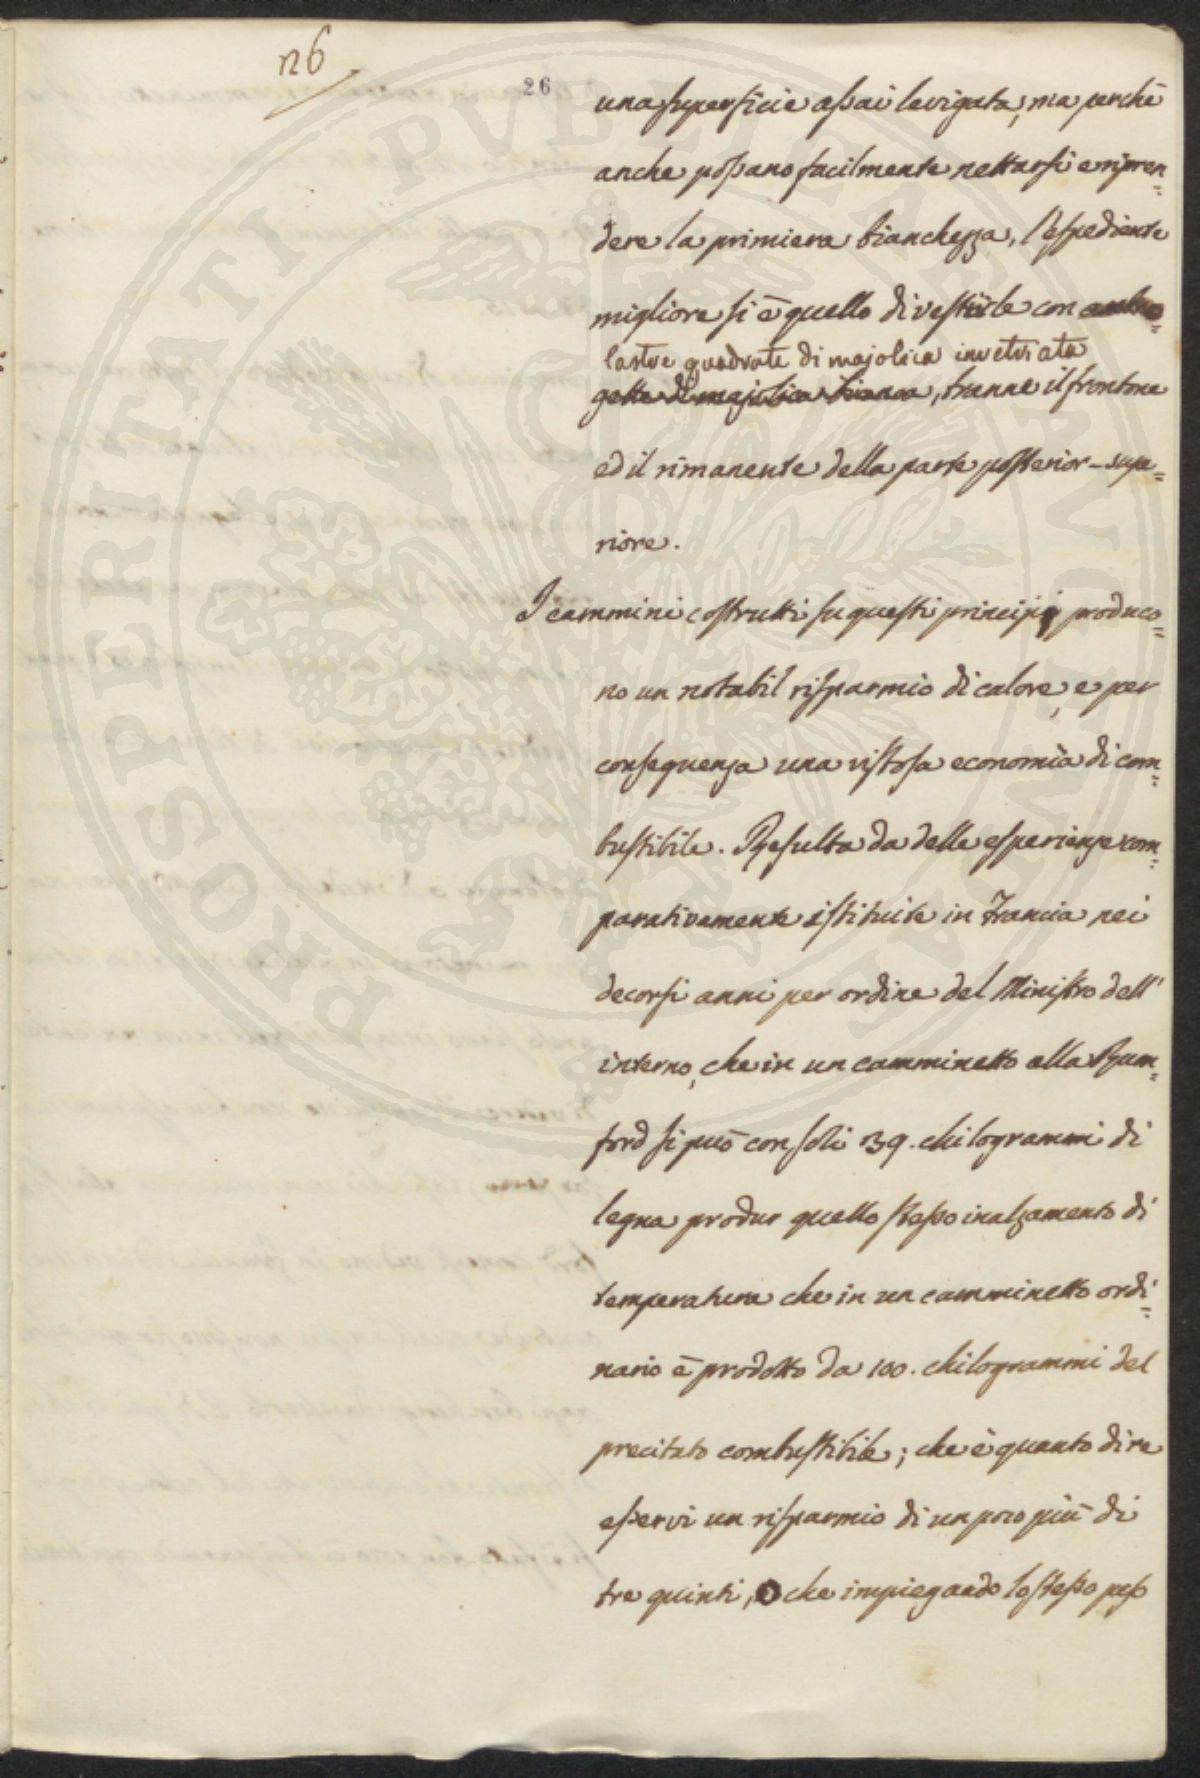 n6
26
una superficie assai levigata, ma perchè
anche possano facilmente nettarsi e ripren=
dere la primiera bianchezza, l'espediente
migliore si è quello di vestirle con
lastre quadrate di majolica invetriata
gette di majolica bianca, tranne il frontone
ed il rimanente della parte posterior-supe=
riore.
I cammini costrutti su questi principj produco=
no un notabil risparmio di calore, e per
conseguenza una vistosa economia di com=
bustibile. Resulta da delle esperienze com=
parativamente istituite in Francia nei
decorsi anni per ordine del Ministro dell'
interno, che in un camminetto alla Rum=
ford si può con soli 39. chilogrammi di
legna produr quello stesso inalzamento di
temperatura che in un camminetto ordi=
nario è prodotto da 100. chilogrammi del
precitato combustibile; che è quanto dire
esservi un risparmio di un poco più di
tre quinti, o che impiegando lo stesso peso
PROSPERITATI PUBLICAE AUGENDAE